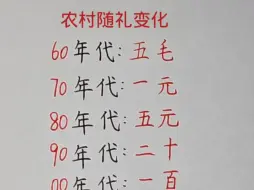 农村随礼变化
60年代:五毛
70年代:一元
80年代:五元
90年代:二十
00年代:一百